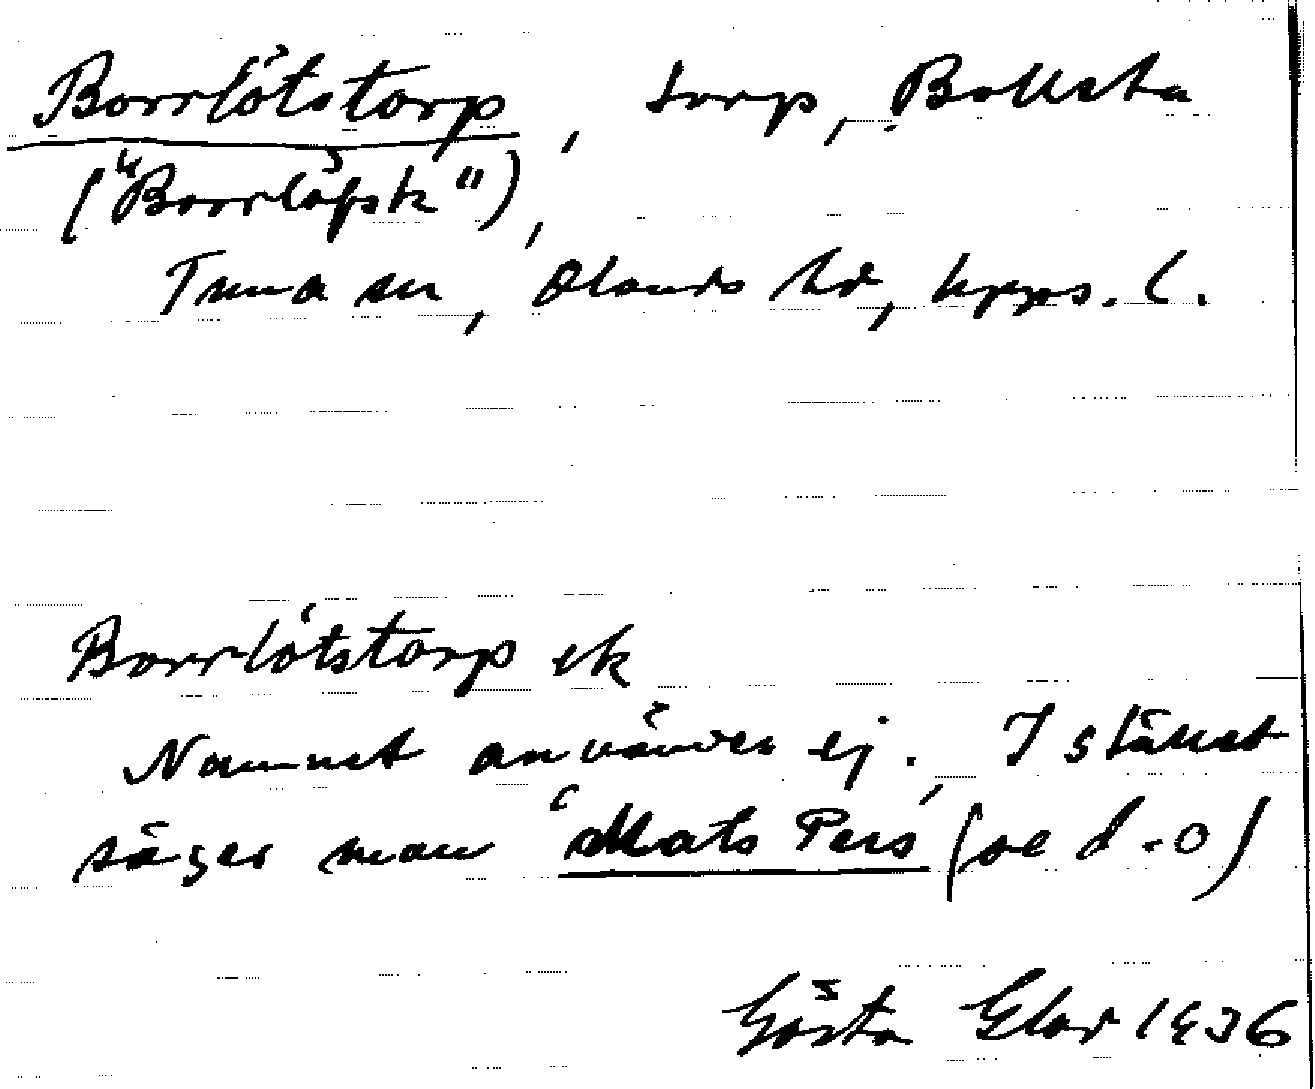 Borrlötstorp, torp, Bollsta
("Borrlöpsk"),
Tuna sn, Olands hd, Upps. l.
Borrlötstorp ek
Namnet användes ej. I stället
säger man 'Mats Pers' (se d.o)
Gösta Elar 1936